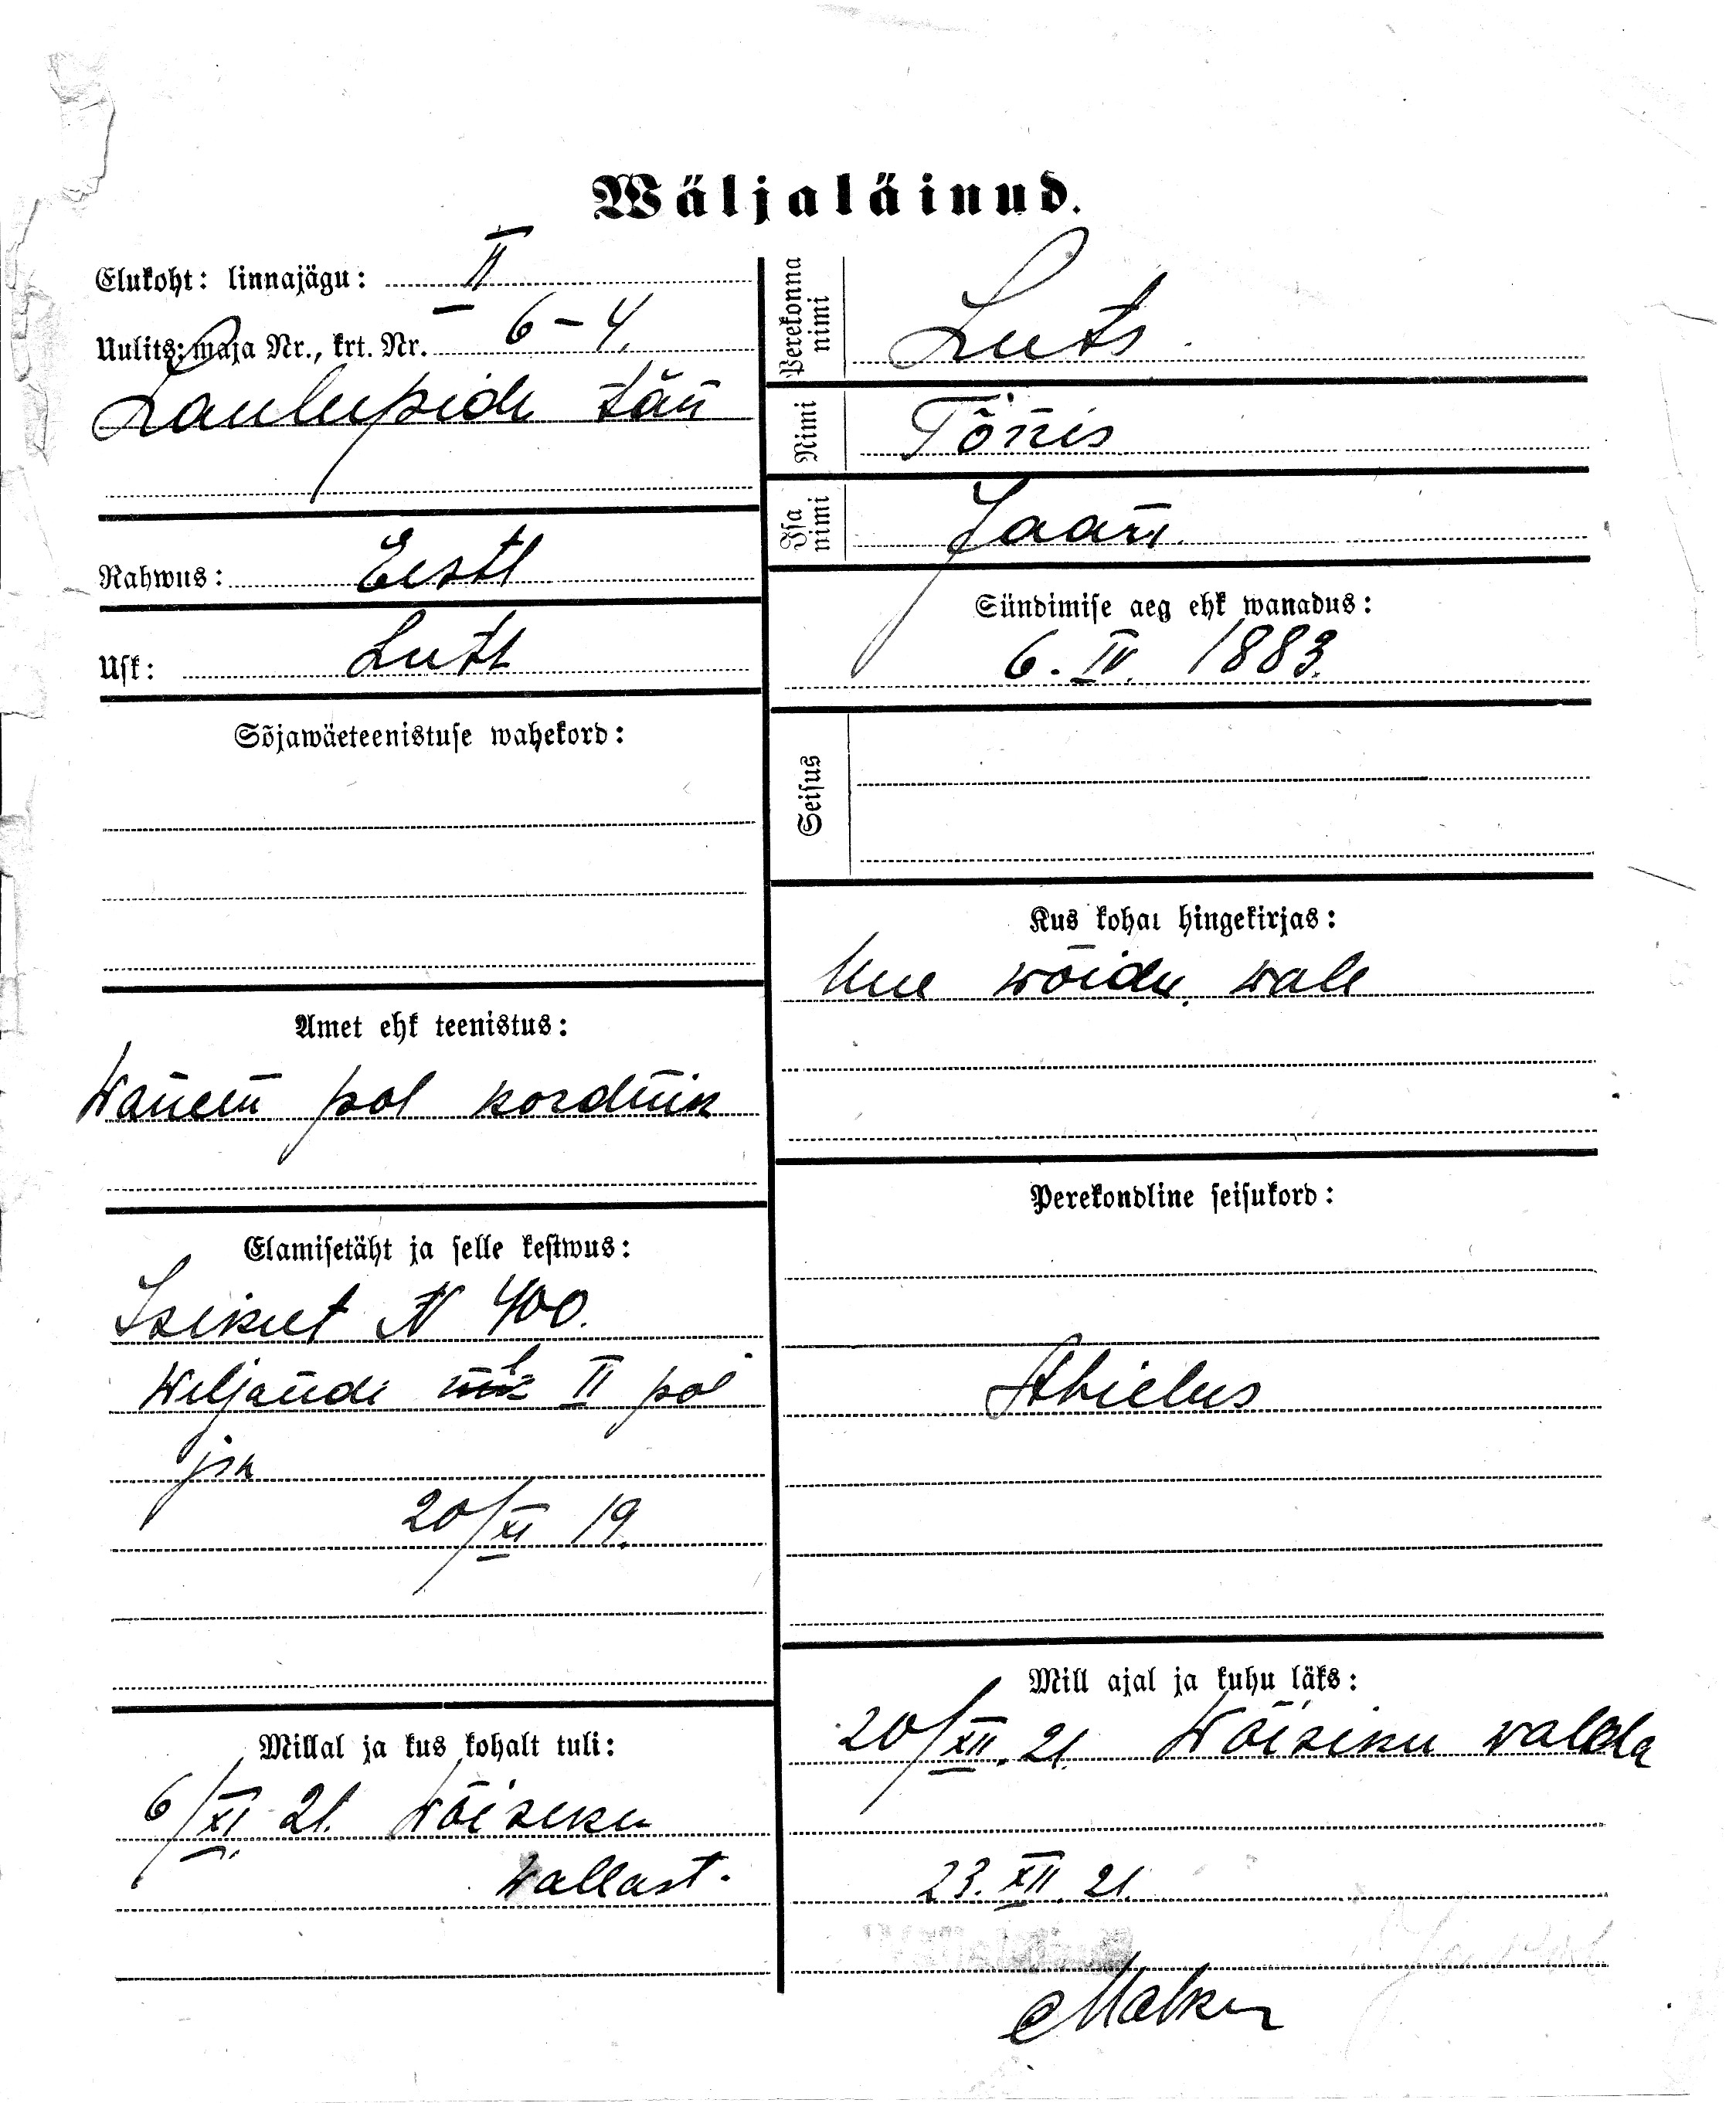 Wäljaläinud.
Elukoht: linnajägu: II
Uulits, maja Nr., krt. Nr. 6-4.
Laulupidu tän
Rahwus: Eestl
Usk: Lutl
Sõjawäeteenistuse wahekord:
Amet ehk teenistus:
Wanem pol kordnik
Elamisetäht ja selle kestwus:
Isikut N 400.
Wiljandi II pol
jsk
20/XI 19.
Millal ja kus kohalt tuli:
6/XI 21. Wõisiku
wallast.
Perekonna nimi Luts.
Nimi Tõnis
Isa nimi Jaan.
Sündimise aeg ehk wanadus:
6. IV. 1883.
Seisus
Kus kohal hingekirjas:
Uue wõidu wall
Perekondline seisukord:
Abielus
Mill ajal ja kuhu läks:
20/XII. 21. Wõisiku walda
23. XII. 21.